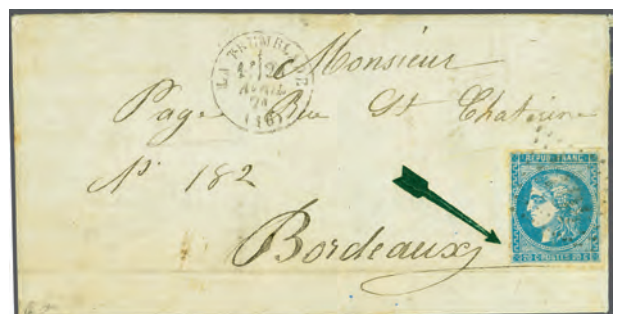 LA TREMBLADE
AVRIL
71
(16)
Monsieur
Page Rue St Chatrine
N° 182
Bordeaux
REPUB. FRANC.
20 C POSTES 20 C